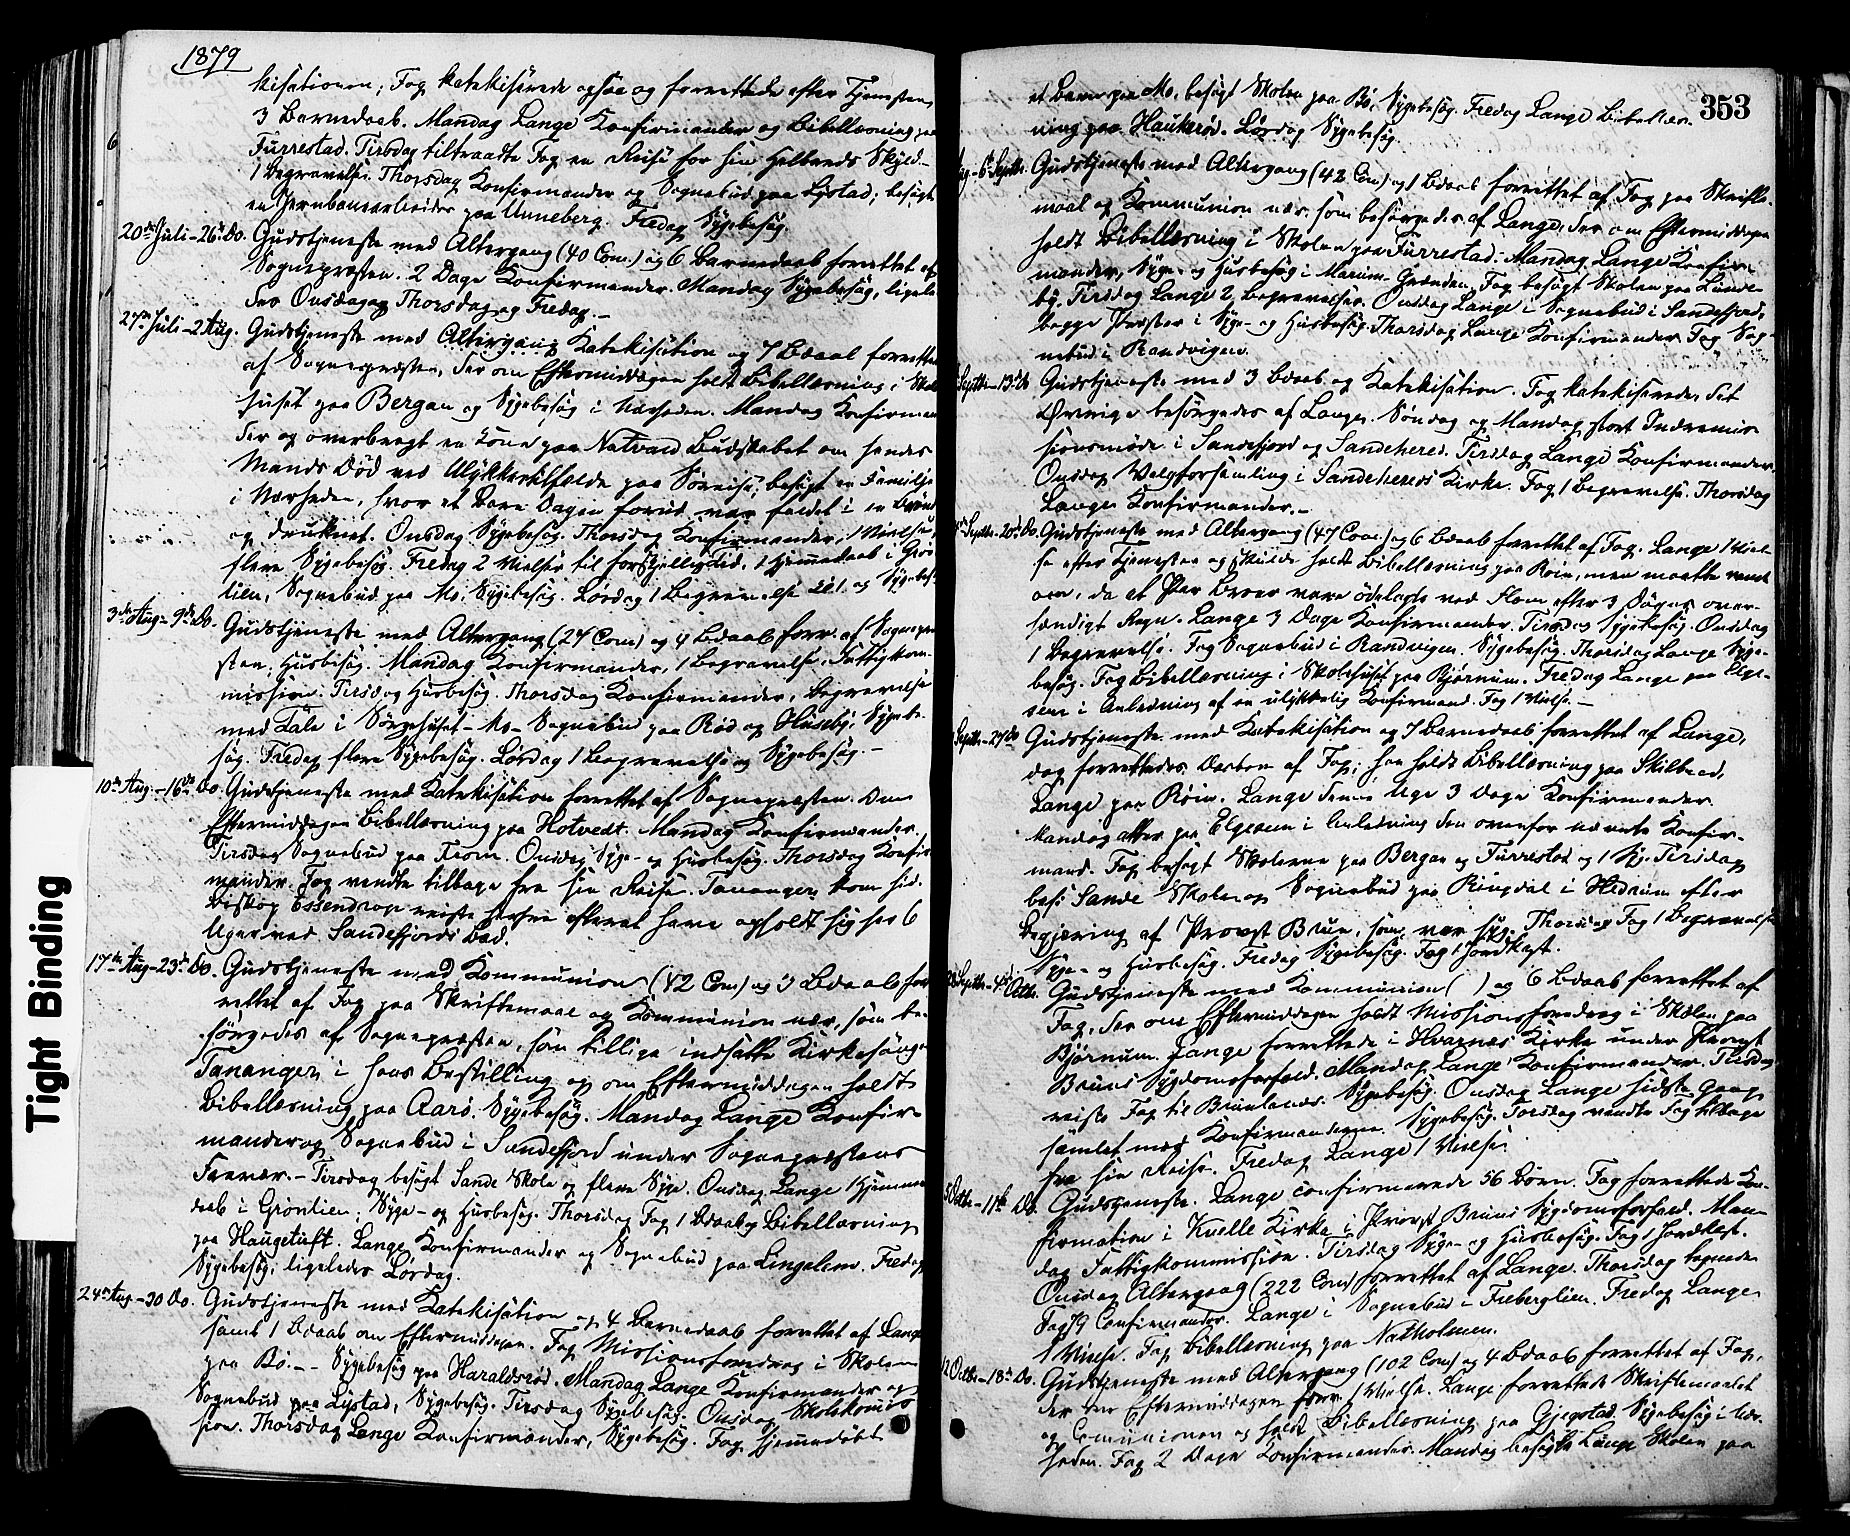 1879
kisationen; Fog katekiserede ogsaa og forrettede efter Tjenesten
3 Barnedaab. Mandag Lange Konfirmander og Bibellæsning paa
Furrestad. Tirsdag tiltraadte Fog en Reise for sin Helbreds Skyld –
1 Begravelse. Thorsdag Konfirmander og Sognebud paa Lystad; besøgt
en Jernbanearbeider paa Unneberg. Fredag Sygebesøg.
20de Juli – 26 Do. Gudstjeneste med Altergang (40 Com.) og 6 Barnedaab forrettet af
Sognepræsten. 2 Dage Konfirmander. Mandag Sygebesøg, ligele-
des Onsdag og Thorsdag og Fredag. –
27de Juli – 2 Aug. Gudstjeneste med Altergang Katekisation og 7 Bdaab forrettet
af Sognepræsten, der om Eftermiddagen holdt Bibellæsning i Skole
huset paa Bergan og Sygebesøg i Nærheden. Mandag Konfirman
der og overbragt en Kone paa Natvard Budskabet om hendes
Mands Død ved Ulykkestilfælde paa Søreise; besøgt en Familie
i Nærheden, hvor et Barn Dagen forud var faldet i en Brønd
og druknet. Onsdag Sygebesøg. Thorsdag Konfirmander, 1 Vielse,
flere Sygebesøg. Fredag 2 Vielser til forskjellig Tid, 1 Hjemmedaab i Grøn
lien, Sognebud paa Mo, Sygebesøg. Lørdag 1 Begravelse og Sygebes.
3de Aug – 9de Do. Gudstjeneste med Altergang (27 Com) og 4 Bdaab forr. af Sognepræ
sten. Husbesøg. Mandag Konfirmander, 1 Begravelse, Fattigkom-
mission. Tirsdag Husbesøg. Thorsdag Konfirmander, Begravelse
med Tale i Sørgehuset – Mo – Sognebud paa Rød og Huseby. Sygebe-
søg. Fredag flere Sygebesøg. Lørdag 1 Begravelse og Sygebesøg. –
10de Aug. – 16de Do. Gudstjeneste med Katekisation forrettet af Sognepræsten. Om
Eftermiddagen Bibellæsning paa Hotvedt. Mandag Konfirmander.
Tirsdag Sognebud paa Krom. Onsdag Syge- og Husbesøg. Thorsdag Konfir
mander. Fog vendte tilbage fra sin Reise. Tananger kom hid.
Biskop Essendrop reiste herfra efterat have opholdt sig her 6
Uger ved Sandefjords Bad.
17de Aug – 23de Do. Gudstjeneste med Kommunion (42 Com) og 3 Bdaab for
rettet af Fog paa Skriftemaal og Kommunion nær, som be-
sørgedes af Sognepræsten, som tillige indsatte Kirkesanger
Tananger i hans Bestilling og om Eftermiddagen holdt
Bibellæsning paa Aarø. Sygebesøg. Mandag Lange Konfir-
mander og Sognebud i Sandefjord under Sognepræstens
Fravær. – Tirsdag besøgt Sande Skole og flere Syge. Onsdag Lange 1 Hjemme
daab i Grønlien; Syge- og Husbesøg. Thorsdag Fog 1 Bdaab og Bibellæsning
paa Haugetuft. Lange Konfirmander og Sognebud paa Lingelem. Fredag
Sygebesøg, ligeledes Lørdag.
24de Aug – 30 Do. Gudstjeneste med Katekisation og 4 Barnedaab forrettet af Lange
samt 1 Bdaab om Eftermiddagen. Fog Missionsforedrag i Skolen
paa Bø. – Sygebesøg paa Haraldsrød. Mandag Lange Konfirmander og
Sognebud paa Lystad, Sygebesøg. Tirsdag Sygebesøg. Onsdag Skolekomis
sion. Thorsdag Lange Konfirmander, Sygebesøg. Fog hjemmedøbt
353
et Barn paa Mo, besøgt Skolen paa Bø, Sygebesøg. Fredag Lange Bibellæs-
ning paa Haukerød. Lørdag Sygebesøg.
Aug – 6 Septbr. Gudstjeneste med Altergang (42 Com) og 1 Bdaab forrettet af Fog paa Skrifte-
maal og Kommunion nær, som besørgedes af Lange, der om Eftermiddagen
holdt Bibellæsning i Skolen paa Furrestad. Mandag Lange Konfir-
mander, Syge- og Husbesøg i Marum-Grænden, Fog besøgt Skolen paa Lunde-
by. Tirsdag Lange 2 Begravelser. Onsdag Lange i Sognebud i Sandefjord,
begge Præster i Syge- og Husbesøg. Thorsdag Lange Konfirmander Fog Sog-
nebud i Ranvigen.
Septbr – 13de Do Gudstjeneste med 3 Bdaab og Katekisation. Fog katekiserede det
Øvrige besørgedes af Lange. Søndag og Mandag stort Indremis
sionsmøde i Sandefjord og Sandehered. Tirsdag Lange Konfirmander,
Onsdag Valgforsamling i Sandehereds Kirke. Fog 1 Begravelse. Thorsdag
Lange Konfirmander. –
Septbr – 20de Do. Gudstjeneste med Altergang (47 Com) og 6 Bdaab forrettet af Fog. Lange 1 Viel-
se efter Tjenesten og skulde holdt Bibellæsning paa Røin, men maatte vende
om, da et Par Broer vare ødelagte ved Flom efter 3 Døgns over-
hændigt Regn. Lange 3 Dage Konfirmander. Tirsdag Sygebesøg. Onsdag
1 Begravelse. Fog Sognebud i Randvigen. Sygebesøg. Thorsdag Lange Syge-
besøg. Fog Bibellæsning i Skolehuset paa Bjørnum. Fredag Lange paa Elge-
sem i Anledning af en ulykkelig Konfirmand. Fog 1 Vielse. –
Septbr – 27de Do Gudstjeneste med Katekisation og 7 Barnedaab forrettet af Lange,
dog forrettedes Daaben af Fog; han holdt Bibellæsning paa Skilbred,
Lange paa Røin. Lange denne Uge 3 Dage Konfirmander.
Mandag atter paa Elgesem i Anledning den ovenfor nævnte Konfir-
mand. Fog besøgt Skolerne paa Bergan og Furrestad og 1 Sy. Tirsdag
bes: Sande Skole og Sognebud paa Ringdal i Hedrum efter
Begjæring af Provst Bruun, som var syg. Thorsdag Fog 1 Begravelse
Syge- og Husbesøg. Fredag Sygebesøg. Fog 1 Jordkast.
28 Septbr – 4de Octbr. Gudstjeneste med Kommunion ( ) og 6 Bdaab forrettet af
Fog, der om Eftermiddagen holdt Missionsforedrag i Skolen paa
Bjørnum. Lange forrettede i Hvarnes Kirke under Provst
Bruuns Sygdomsforfald. Mandag Lange Konfirmander. Tirsdag
reiste Fog til Brunlanes. Sygebesøg. Onsdag Lange sidste Gang
samlet med Konfirmanderne. Sygebesøg. Torsdag vendte Fog tilbage
fra sin Reise. Fredag Lange 1 Vielse.
5 Octbr – 11te Do. Gudstjeneste. Lange confirmerede 56 Børn. Fog forrettede Kon-
firmation i Kvelle Kirke i Provst Bruuns Sygdomsforfald. Man-
dag Fattigkommission. Tirsdag Syge- og Husbesøg. Fog 1 Jordkast.
Onsdag Altergang (222 Com) forrettet af Lange. Thorsdag tegnede
Fog 79 Confirmander. Lange i Sognebud i Freberglien. Fredag Lange
1 Vielse. Fog Bibellæsning paa Natholmen.
12 Octbr – 18de Do. Gudstjeneste med Altergang (102 Com) og 4 Bdaab forrettet af Fog,
der om Eftermiddagen forr. 1 Vielse. Lange forrettede Skriftemaalet
og Communionen og holdt Bibellæsning paa Gjegstad, Sygebesøg i Nær-
heden. Fog 2 Dage Konfirmander. Mandag besøgte Lange Skolen paa
Tight Binding